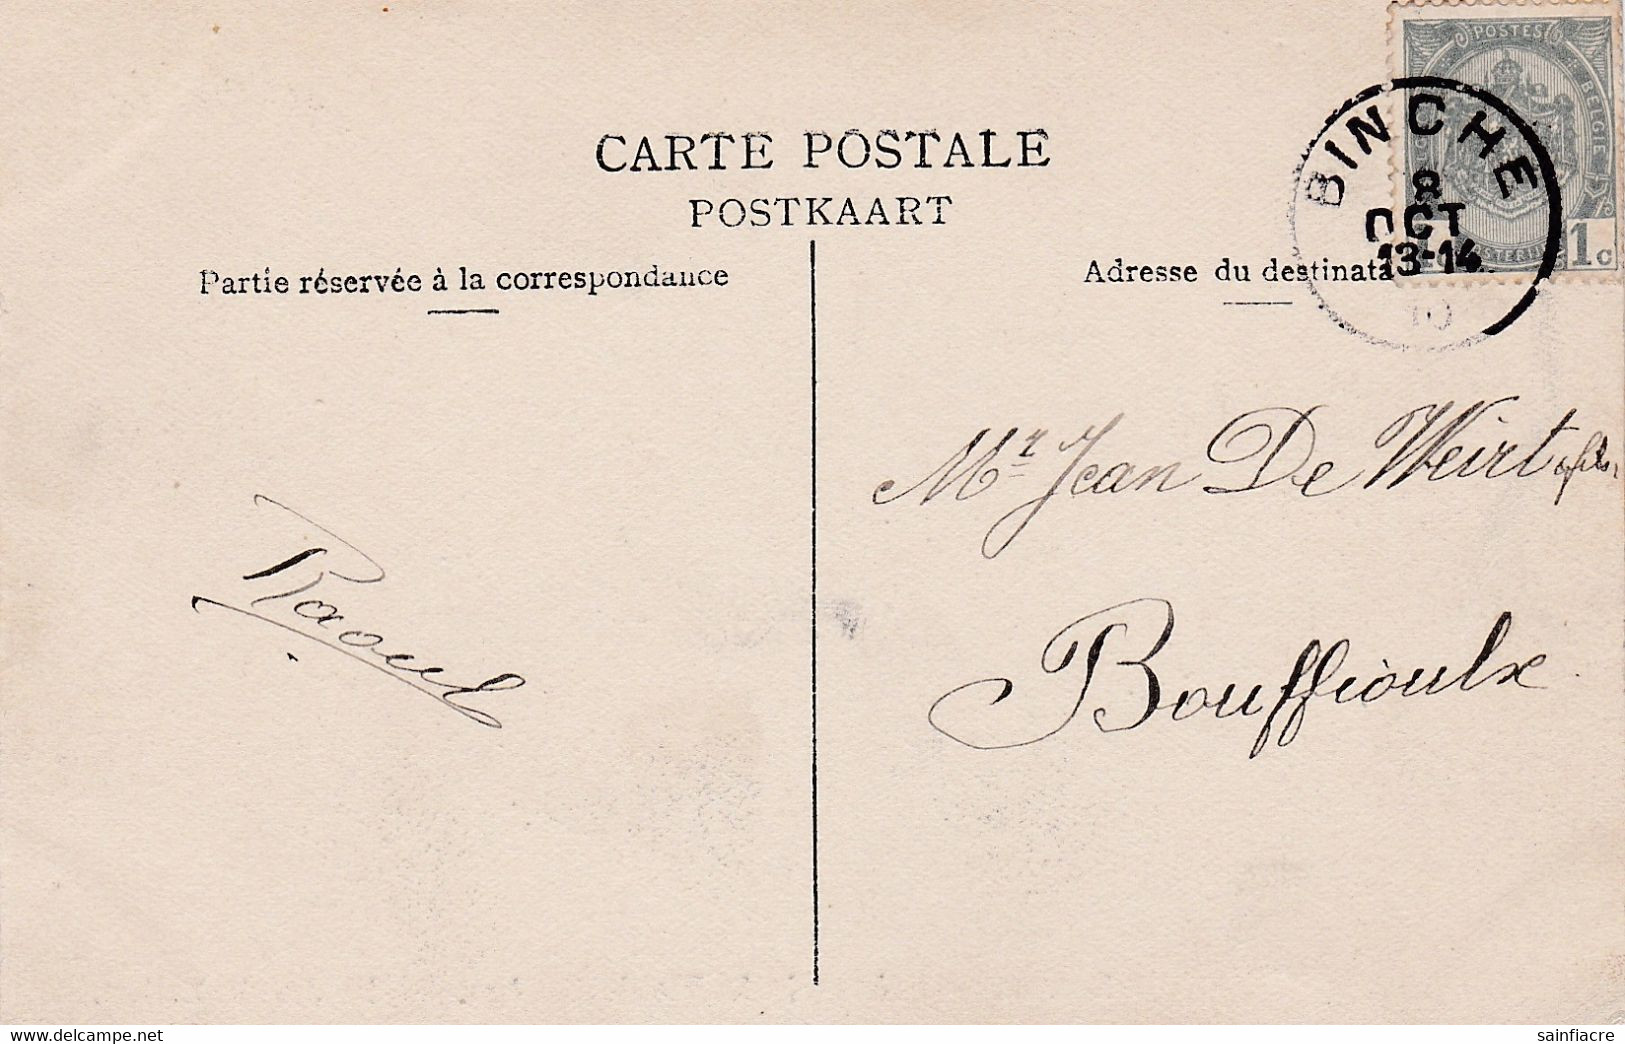 CARTE POSTALE
POSTKAART
Partie réservée à la correspondance
Adresse du destinata
POSTES
BELGIE
1c
BINCHE
8
OCT
13-14
10
Mr Jean De Weirt fils,
Bouffioulx
Raoul
www.delcampe.net
sainfiacre